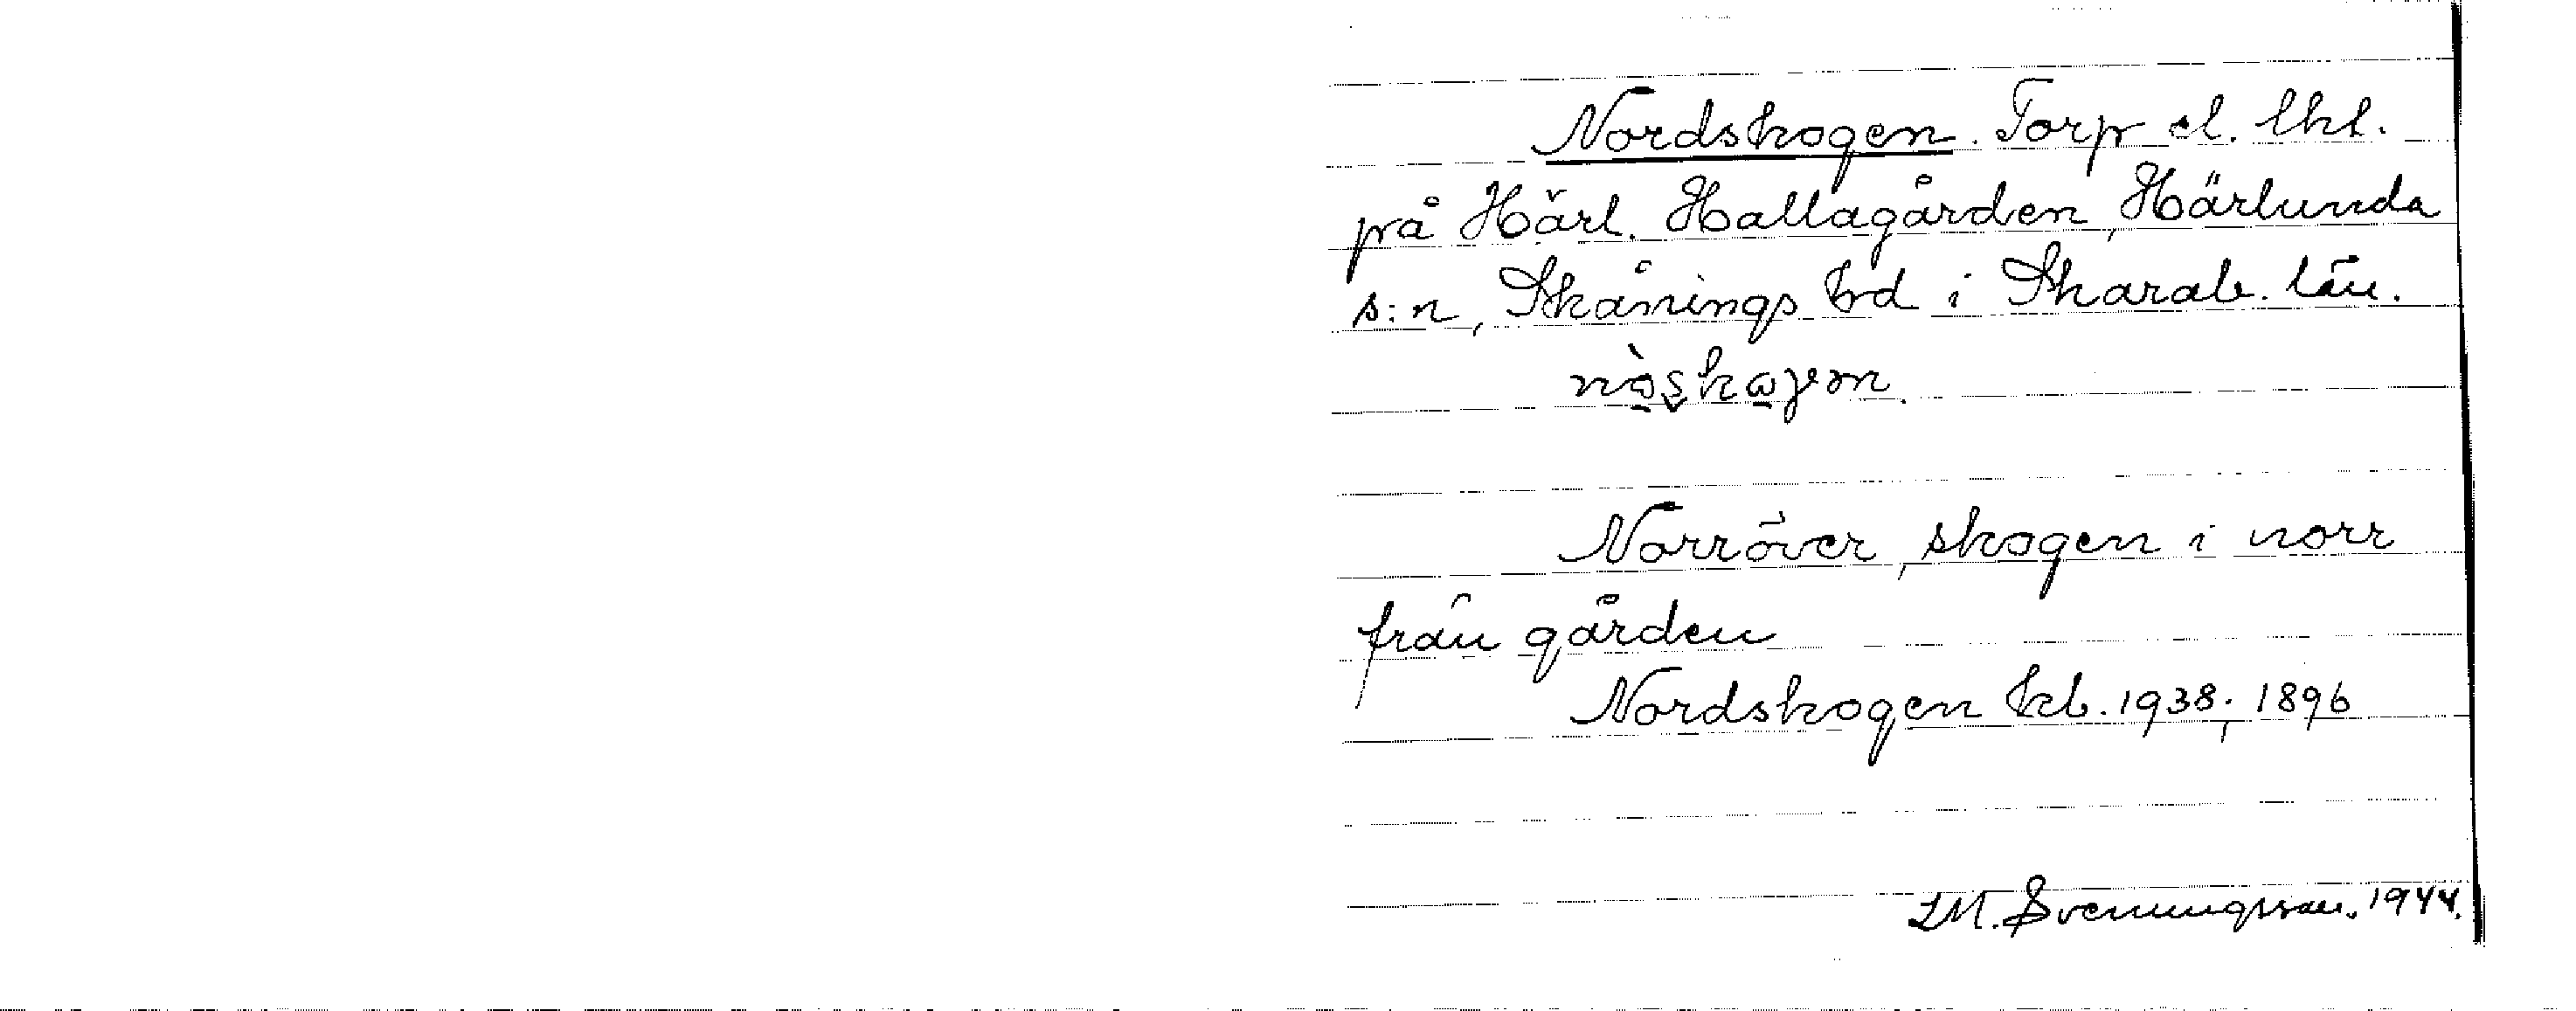 Nordskogen. Torp el. lht.
på Härl. Hallagården, Härlunda
s:n, Skånings hd i Skarab. län.
Norröver, skogen i norr
från gården
Nordskogen kb. 1938; 1896
I.M. Svenungsson. 1944.